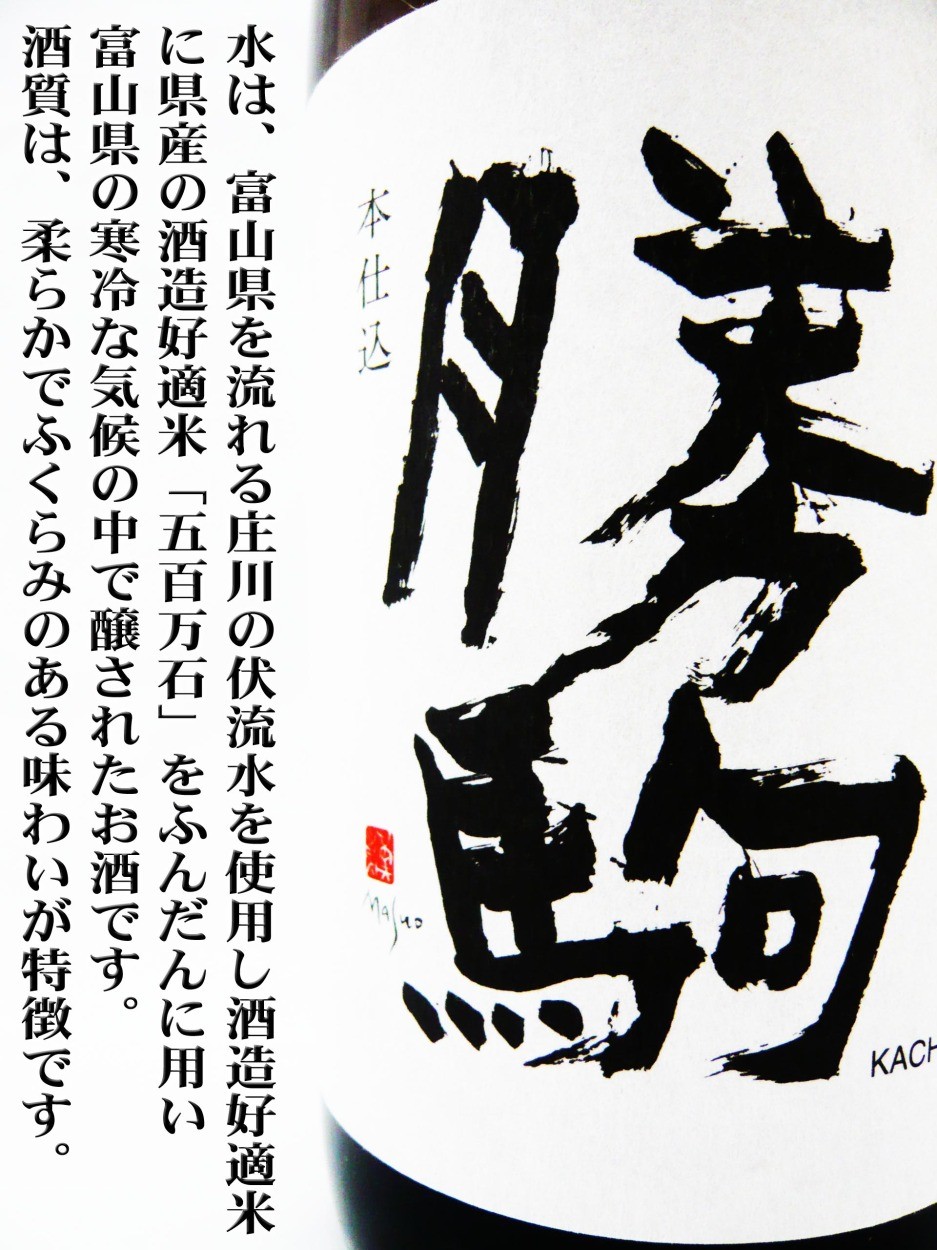 勝駒
本仕込
Masuo
KACH
水は、富山県を流れる庄川の伏流水を使用し酒造好適米
に県産の酒造好適米「五百万石」をふんだんに用い
富山県の寒冷な気候の中で醸されたお酒です。
酒質は、柔らかでふくらみのある味わいが特徴です。